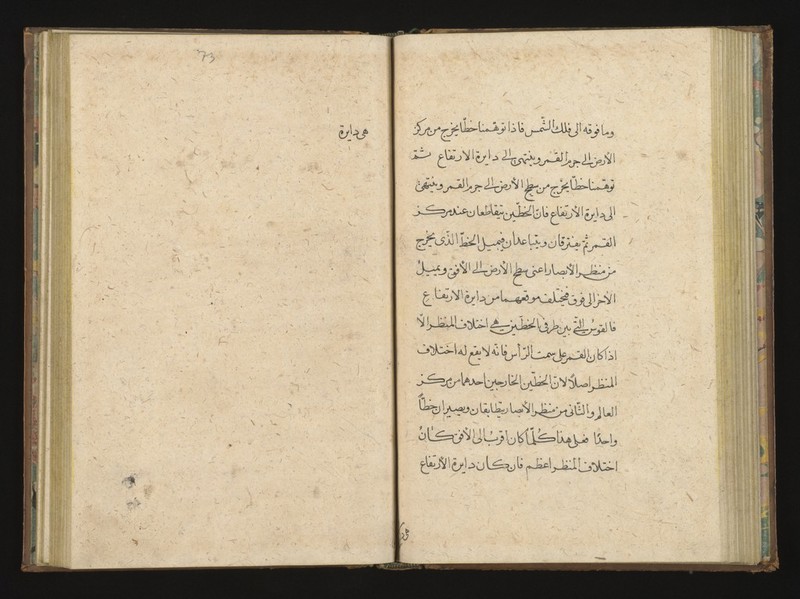 وما فوقه الى فلك الشّمس فاذا توهّمنا خطّا يخرج من مركز
الأرض الى جرم القمر وينتهى الى دايرة الارتفاع ثمّ
توهّمنا خطّا يخرج من سطح الأرض الى جرم القمر وينتهى
الى دايرة الأرتفاع فانّ الخطّين يتقاطعان عند مركز
القمر ثمّ يفترقان ويتباعدان فيميل الخطّ الّذى يخرج
من منظر الأبصار اعنى سطح الأرض الى الأفق ويميل
الآخر الى فوق فيختلف موقعهما من دايرة الارتفاع
فالقوس الّتى بين طرفى الخطّين هى اختلاف المنظر الّا
اذا كان القمر على سمت الرّأس فانّه لا يقع له اختلاف
المنظر اصلًا لانّ الخطّين الخارجين احدهما من مركز
العالم والثّانى من منظر الأبصار يتطابقان ويصيران خطّاً
واحدًا فعلى هذا كُلّما كان اقربُ الى الأفق كان
اختلاف المنظر اعظم فان كان دايرة الأرتفاع
هى دايرة
73